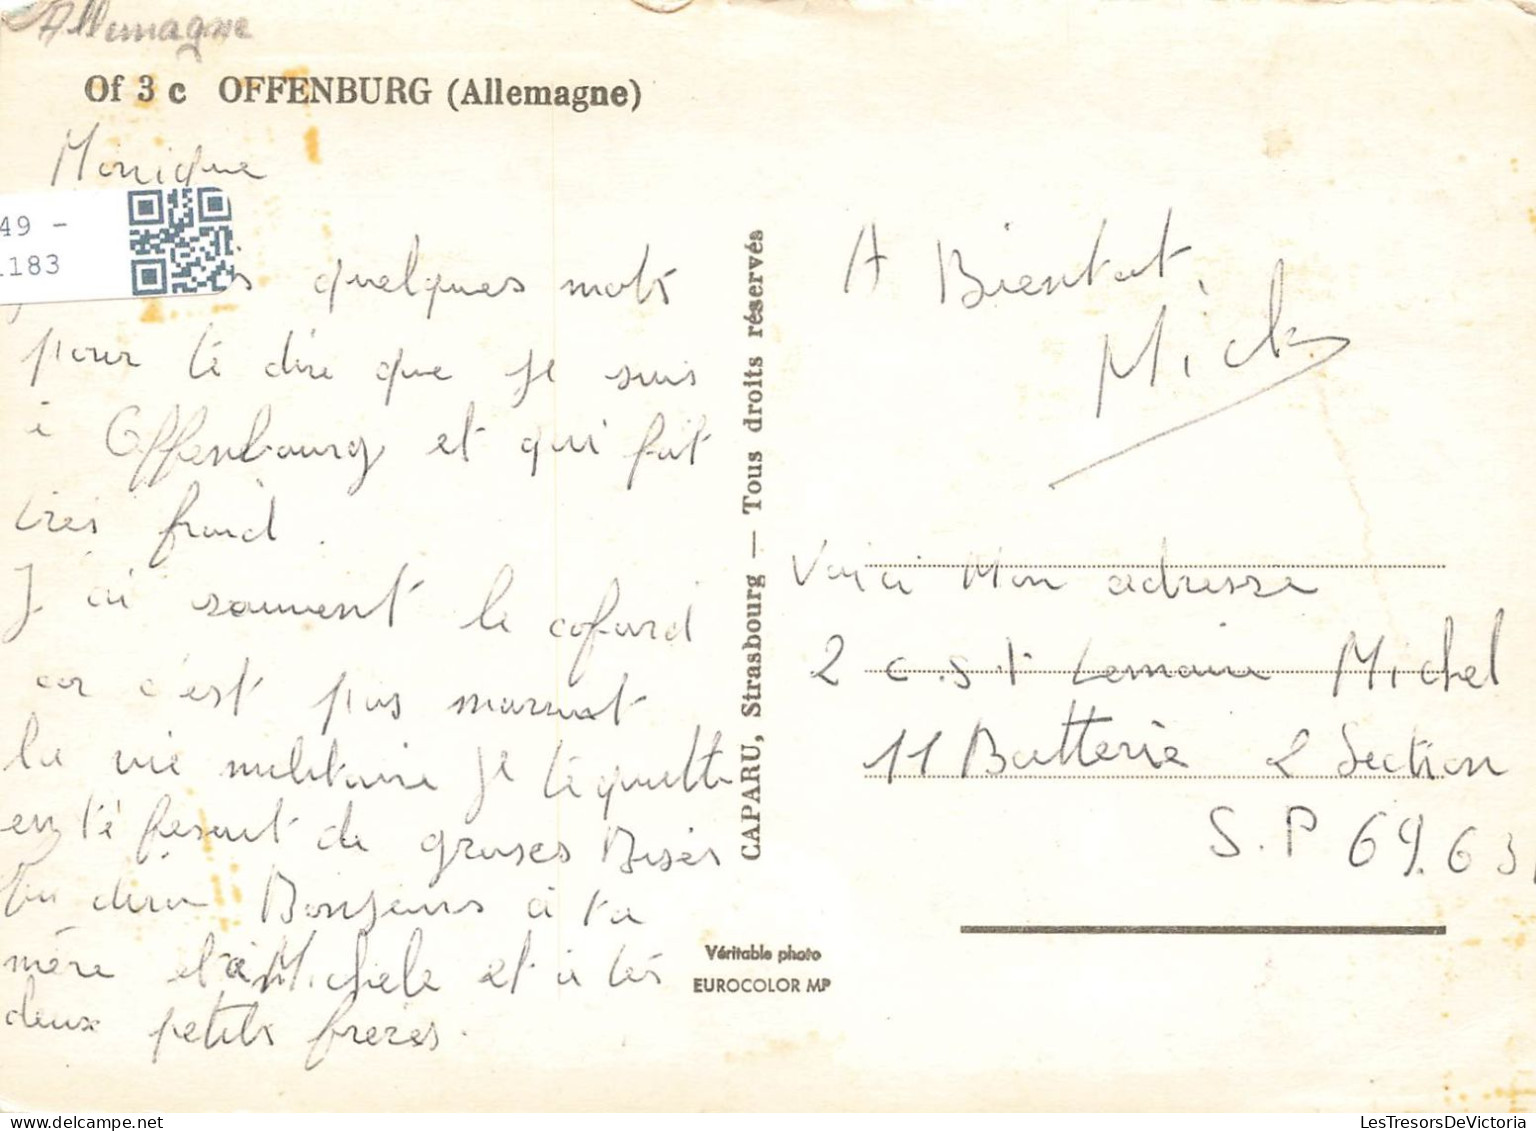 Allemagne
Of 3 c OFFENBURG (Allemagne)
Monique
49 -
1183
quelques mots
pour te dire que je suis
à Offenbourg et qui fait
très froid.
J'ai souvent le cafard
car c'est pas marrant
la vie militaire je te quitte
en te fesant de groses Bises
Tu diras Bonjours a ta
mère et a Michele et a tes
deux petits frères.
CAPARU, Strasbourg — Tous droits réservés
Véritable photo
EUROCOLOR MP
A Bientot,
Voici Mon adresse
2 c.s.t Lemaire Michel
11 Batterie 2 Section
S.P 69.631
LesTresorsDeVictoria
www.delcampe.net